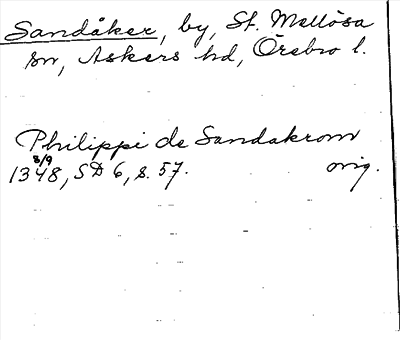 Sandåker, by, St. Mellösa
sn, Askers hd, Örebro l.
Philippi de Sandakrom
8/9
1348, SD 6, s. 57. orig.